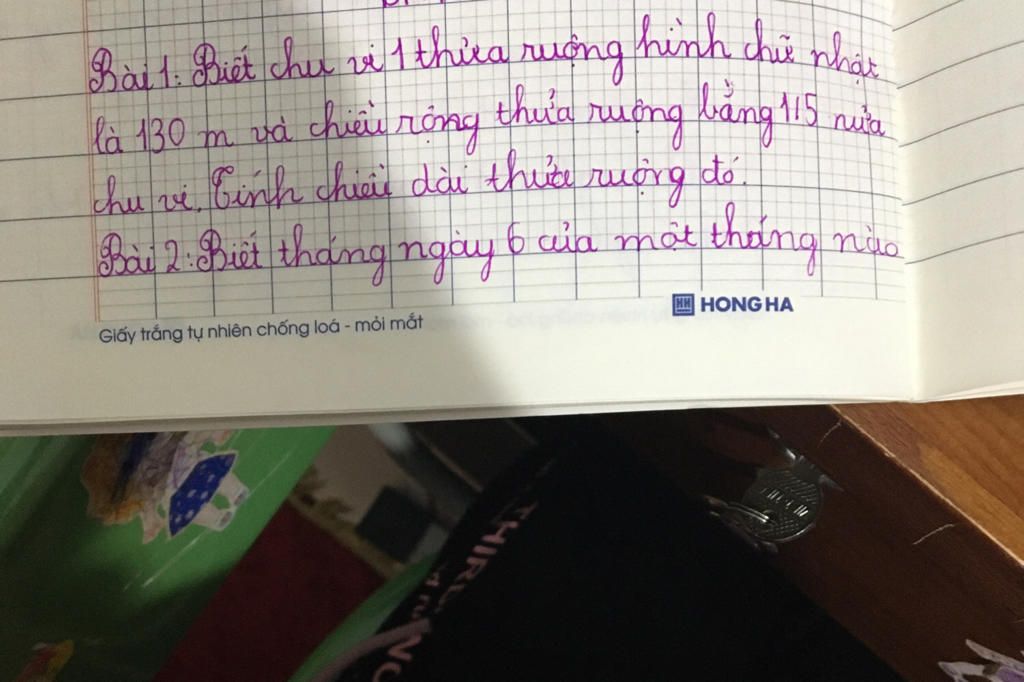 Bài 1: Biết chu vi 1 thửa ruộng hình chữ nhật
là 130 m và chiều rộng thửa ruộng bằng 1/5 nửa
chu vi. Tính chiều dài thửa ruộng đó.
Bài 2: Biết tháng ngày 6 của một tháng nào
HH HONG HA
Giấy trắng tự nhiên chống loá - mỏi mắt
THIRD